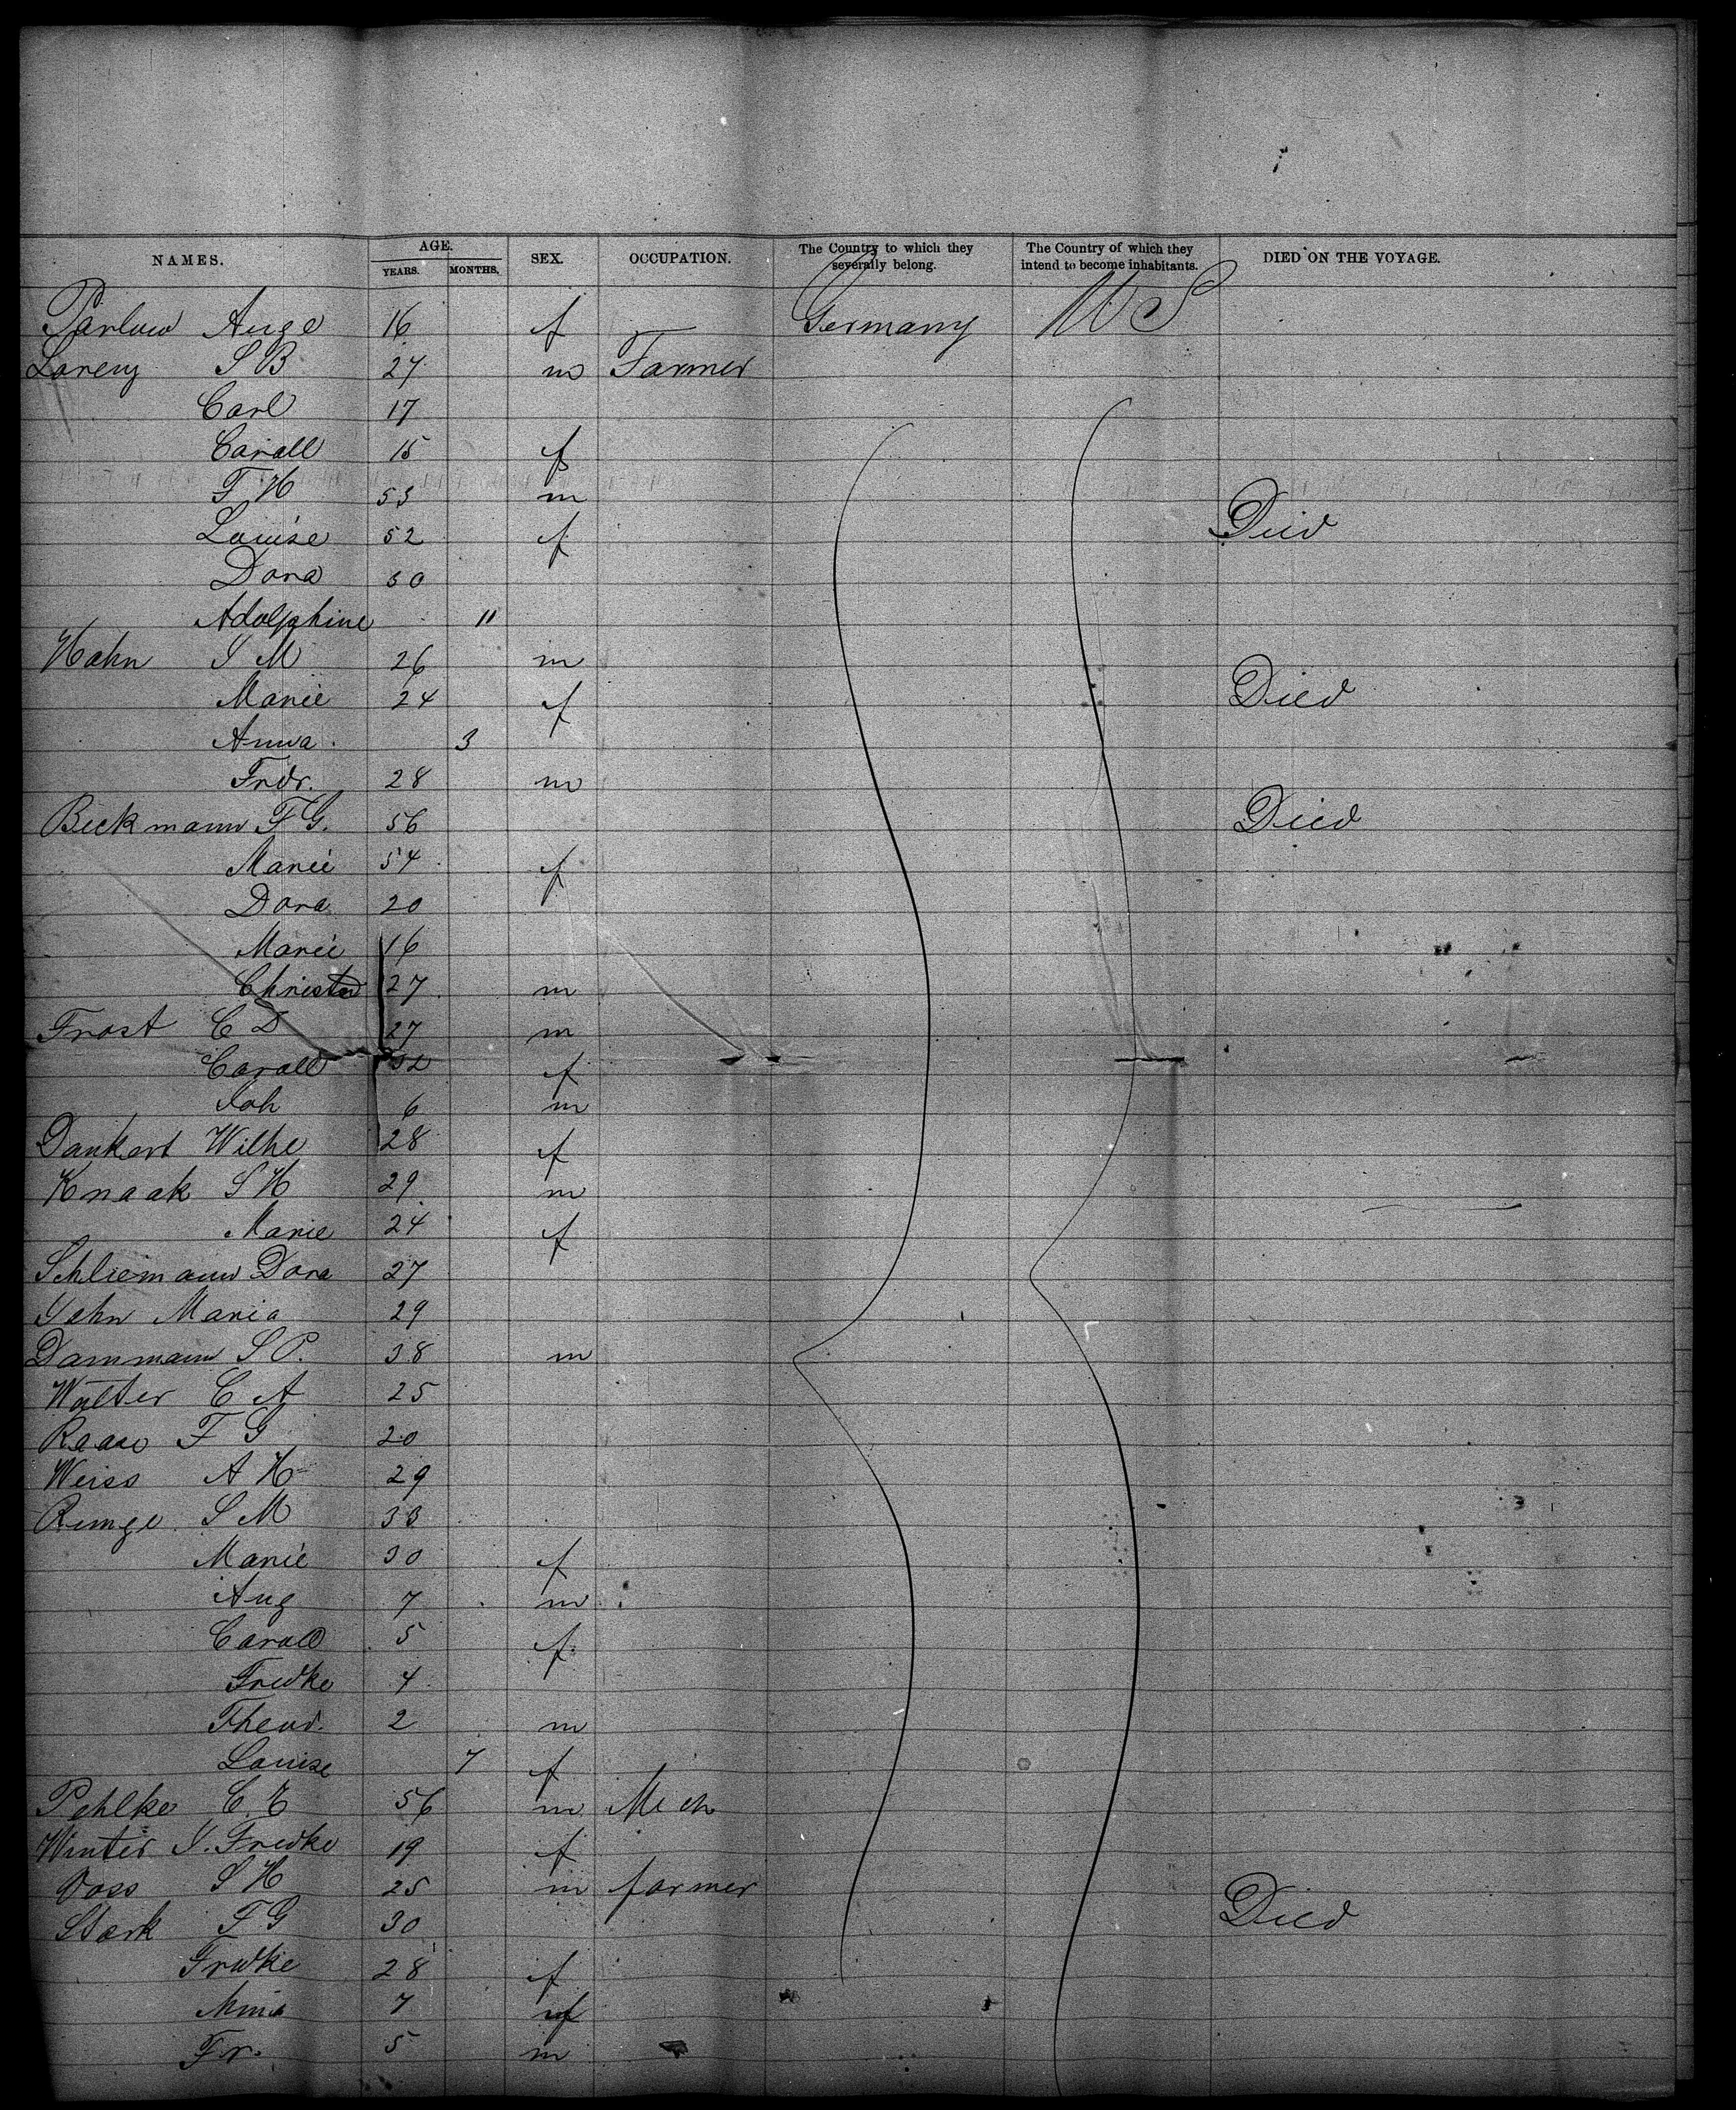 NAMES. AGE. YEARS. MONTHS. SEX. OCCUPATION. The Country to which they severally belong. The Country of which they intend to become inhabitants. DIED ON THE VOYAGE.
Parlow Auge 16 f Germany US
Lorenz S B 27 m Farmer
Carl 17
Caroll 15 f
F H 53 m
Louise 52 f Died
Dora 30
Adolphine 11
Hahn J M 26 m
Marie 24 f Died
Anna 3
Frdr. 28 m
Beckmann F G. 56 Died
Marie 54 f
Dora 20
Marie 16
Christ 27 m
Frost C D 27 m
Carol 32 f
Joh 6 m
Dankert Wilhe 28 f
Knaak S H 29 m
Marie 24 f
Schliemann Dora 27
Jahn Maria 29
Dammann S P. 38 m
Walter C A 25
Raaw F G 20
Weiss A H 29
Runge S M 33
Marie 30 f
Aug 7 m
Carol 5 f
Fredke 4
Theod. 2 m
Louise 7 f
Pehlke C. E 56 m Mech
Winter J. Fredke 19 f
Voss S H 25 m farmer
Stark F G 30 Died
Fredke 28 f
Mina 7 f
Fr. 5 m